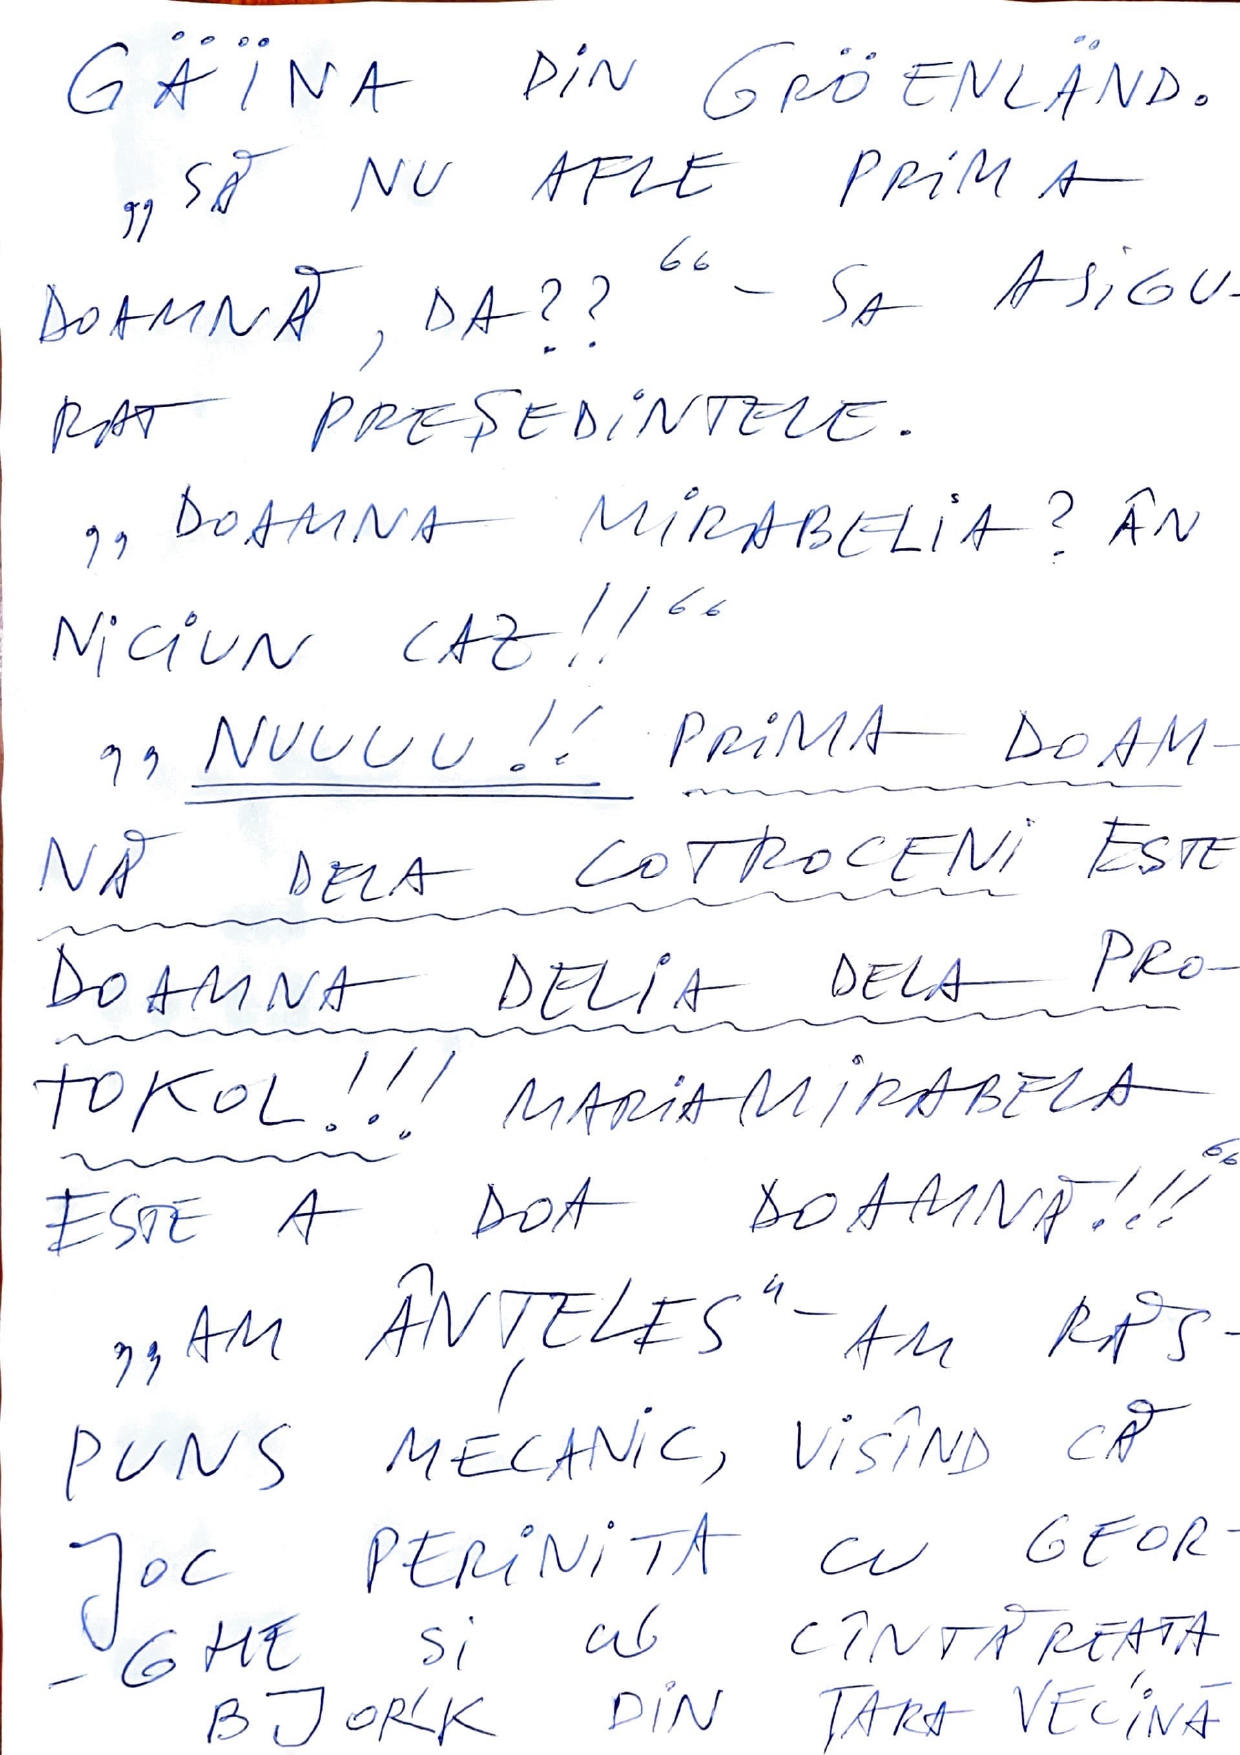 GÄÏNA DIN GRÖENLÄND.
„SĂ NU AFLE PRIMA
DOAMNĂ, DA??“ - SA ASIGU-
RAT PREȘEDINTELE.
„DOAMNA MIRABELIA? ÂN
NICIUN CAZ!!“
„NUUUU!! PRIMA DOAM-
NĂ DELA COTROCENI ESTE
DOAMNA DELIA DELA PRO-
TOKOL!!! MARIAMIRABELA
ESTE A DOA DOAMNĂ!!!“
„AM ÂNȚELES“ - AM RĂS-
PUNS MECANIC, VISÎND CĂ
JOC PERINIȚA CU GEOR-
-GHE SI CU CÎNTĂREAȚA
BJORK DIN ȚARA VECINĂ